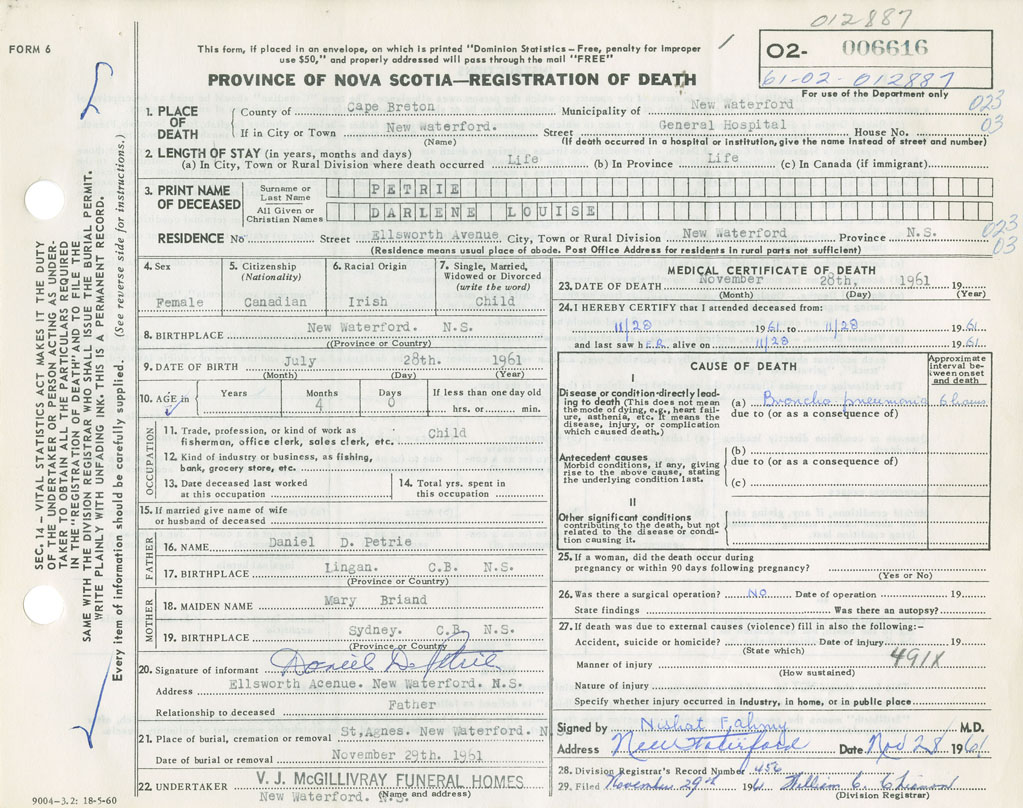 012887
FORM 6
This form, if placed in an envelope, on which is printed "Dominion Statistics – Free, penalty for improper
use $50," and properly addressed will pass through the mail "FREE"
02- 006616
61-02-012887
For use of the Department only
PROVINCE OF NOVA SCOTIA—REGISTRATION OF DEATH
1. PLACE OF DEATH
County of Cape Breton Municipality of New Waterford 023
If in City or Town New Waterford. Street General Hospital House No. 03
(Name) (If death occurred in a hospital or institution, give the name instead of street and number)
2. LENGTH OF STAY (in years, months and days)
(a) In City, Town or Rural Division where death occurred Life (b) In Province Life (c) In Canada (if immigrant)
3. PRINT NAME OF DECEASED
Surname or Last Name PETRIE
All Given or Christian Names DARLENE LOUISE
RESIDENCE No Street Ellsworth Avenue City, Town or Rural Division New Waterford Province N.S. 023
03
(Residence means usual place of abode. Post Office Address for residents in rural parts not sufficient)
4. Sex
Female
5. Citizenship
(Nationality)
Canadian
6. Racial Origin
Irish
7. Single, Married, Widowed or Divorced
(write the word)
Child
8. BIRTHPLACE New Waterford. N.S.
((Province or Country)
9. DATE OF BIRTH July 28th. 1961
(Month) (Day) (Year)
10. AGE in
Years Months Days If less than one day old
4 0 hrs. or min.
OCCUPATION
11. Trade, profession, or kind of work as fisherman, office clerk, sales clerk, etc. Child
12. Kind of industry or business, as fishing, bank, grocery store, etc.
13. Date deceased last worked at this occupation
14. Total yrs. spent in this occupation
15. If married give name of wife or husband of deceased
FATHER
16. NAME Daniel D. Petrie
17. BIRTHPLACE Lingan. C.B. N.S.
(Province or Country)
MOTHER
18. MAIDEN NAME Mary Briand
19. BIRTHPLACE Sydney. C.B. N.S.
(Province or Country)
20. Signature of informant Daniel D. Petrie
Address Ellsworth Acenue. New Waterford. N.S.
Relationship to deceased Father
21. Place of burial, cremation or removal St,Agnes. New Waterford. N
Date of burial or removal November 29th. 1961
22. UNDERTAKER V. J. McGILLIVRAY FUNERAL HOMES
New Waterford. N.S. (Name and address)
9004-3.2: 18-5-60
MEDICAL CERTIFICATE OF DEATH
23. DATE OF DEATH November 28th, 1961 19
(Month) (Day) (Year)
24. I HEREBY CERTIFY that I attended deceased from:
11/28 1961 to 11/28 1961
and last saw hER alive on 11/28 1961
CAUSE OF DEATH
Approximate interval between onset and death
I
Disease or condition directly leading to death (This does not mean the mode of dying, e.g., heart failure, asthenia, etc. It means the disease, injury, or complication which caused death.)
(a) Broncho pneumonia 6 hours
due to (or as a consequence of)
Antecedent causes
Morbid conditions, if any, giving rise to the above cause, stating the underlying condition last.
(b)
due to (or as a consequence of)
(c)
II
Other significant conditions
contributing to the death, but not related to the disease or condition causing it.
25. If a woman, did the death occur during pregnancy or within 90 days following pregnancy?
(Yes or No)
26. Was there a surgical operation? NO Date of operation 19
State findings Was there an autopsy?
27. If death was due to external causes (violence) fill in also the following:–
Accident, suicide or homicide? Date of injury 19
(State which)
491X
Manner of injury
(How sustained)
Nature of injury
Specify whether injury occurred in industry, in home, or in public place
Signed by Nashat Fahmy M.D.
Address New Waterford Date Nov 28 1961
28. Division Registrar's Record Number 456
29. Filed November 29th 1961 William C.
(Division Registrar)
SEC. 14 – VITAL STATISTICS ACT MAKES IT THE DUTY
OF THE UNDERTAKER OR PERSON ACTING AS UNDER-
TAKER TO OBTAIN ALL THE PARTICULARS REQUIRED
IN THE "REGISTRATION OF DEATH" AND TO FILE THE
SAME WITH THE DIVISION REGISTRAR WHO SHALL ISSUE THE BURIAL PERMIT.
WRITE PLAINLY WITH UNFADING INK. THIS IS A PERMANENT RECORD.
Every item of information should be carefully supplied. (See reverse side for instructions.)